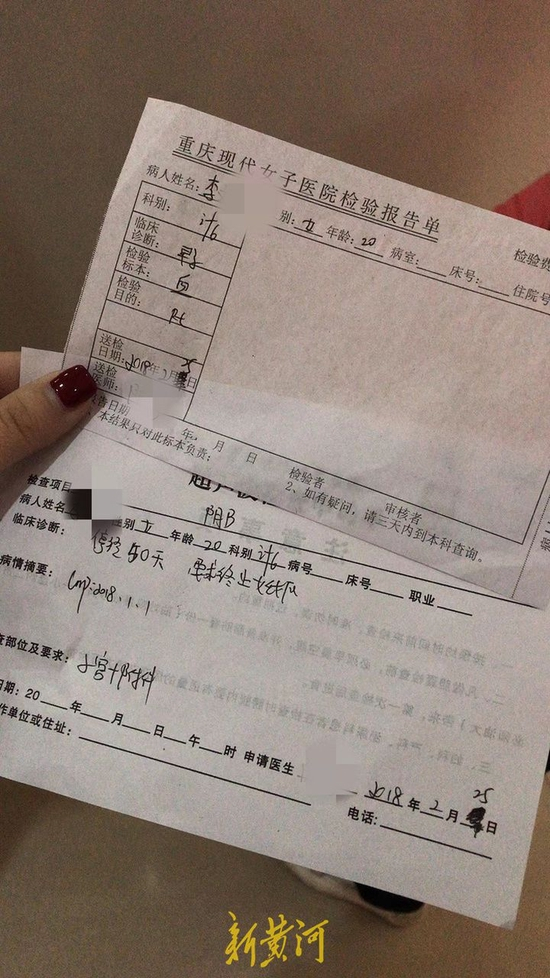 重庆现代女子医院检验报告单
病人姓名:李 别:女 年龄:20 病室: 床号: 住院号
检验费
科别:
临床
诊断:
检验
标本:
检验
目的:
送检
日期:2018年2月25日
送检
医师:
告日期 年 月 日
本结果只对此标本负责: 检验者 审核者
2、如有疑问,请三天内到本科查询。
检查项目 阴B
病人姓名 性别女 年龄20 科别 病号 床号 职业
临床诊断: 停经50天 要求终止妊娠
病情摘要: Lmp:2018.1.1
查部位及要求: 子宫+附件
日期:20 年 月 日 午 时 申请医生
作单位或住址: 2018年2月25日
电话:
新黄河